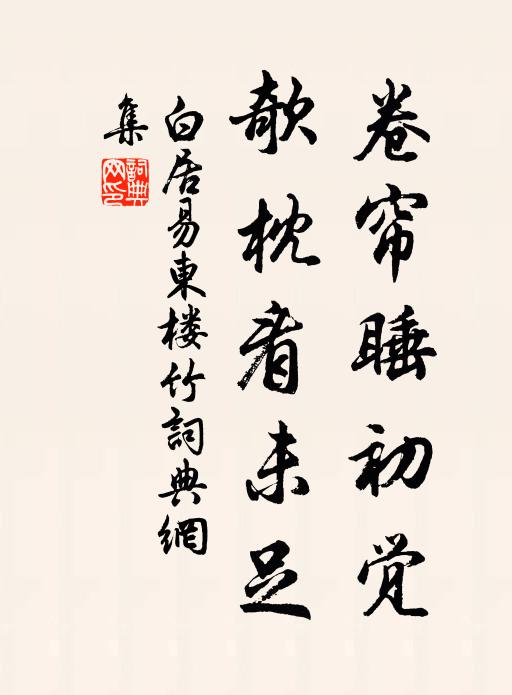 卷帘睡初觉
欹枕看未足
白居易東楼竹詞典網
集
詞典網印